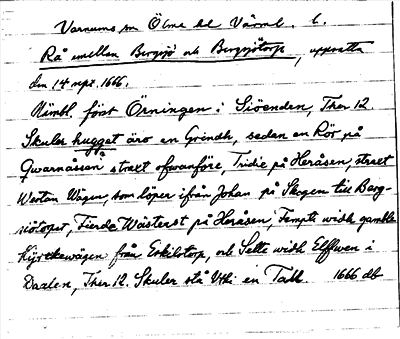 Varnums sn Ölme hd Värml. l.
Rå emellan Bergsjö och Bergsjötorp, upprätta
den 14 sept. 1666.
Nämbl. först Örningen i Siöenden, Ther 12
Skuler hugget äro en Grindh, sedan en Rör på
Qwarnåssen straxt ofwanföre, Tridie på Heråsen, straxt
Westan Wägen, som löper ifrån Johan på Skogen till Berg-
siötorpet, Fierde Wästerst på Heråsen, Fempte widh gamble
Kÿrckewägen från Eskilstorp, och Sette widh Elffwen i
Daalen, Ther 12. Skuler stå Uthi en Tall. 1666 db